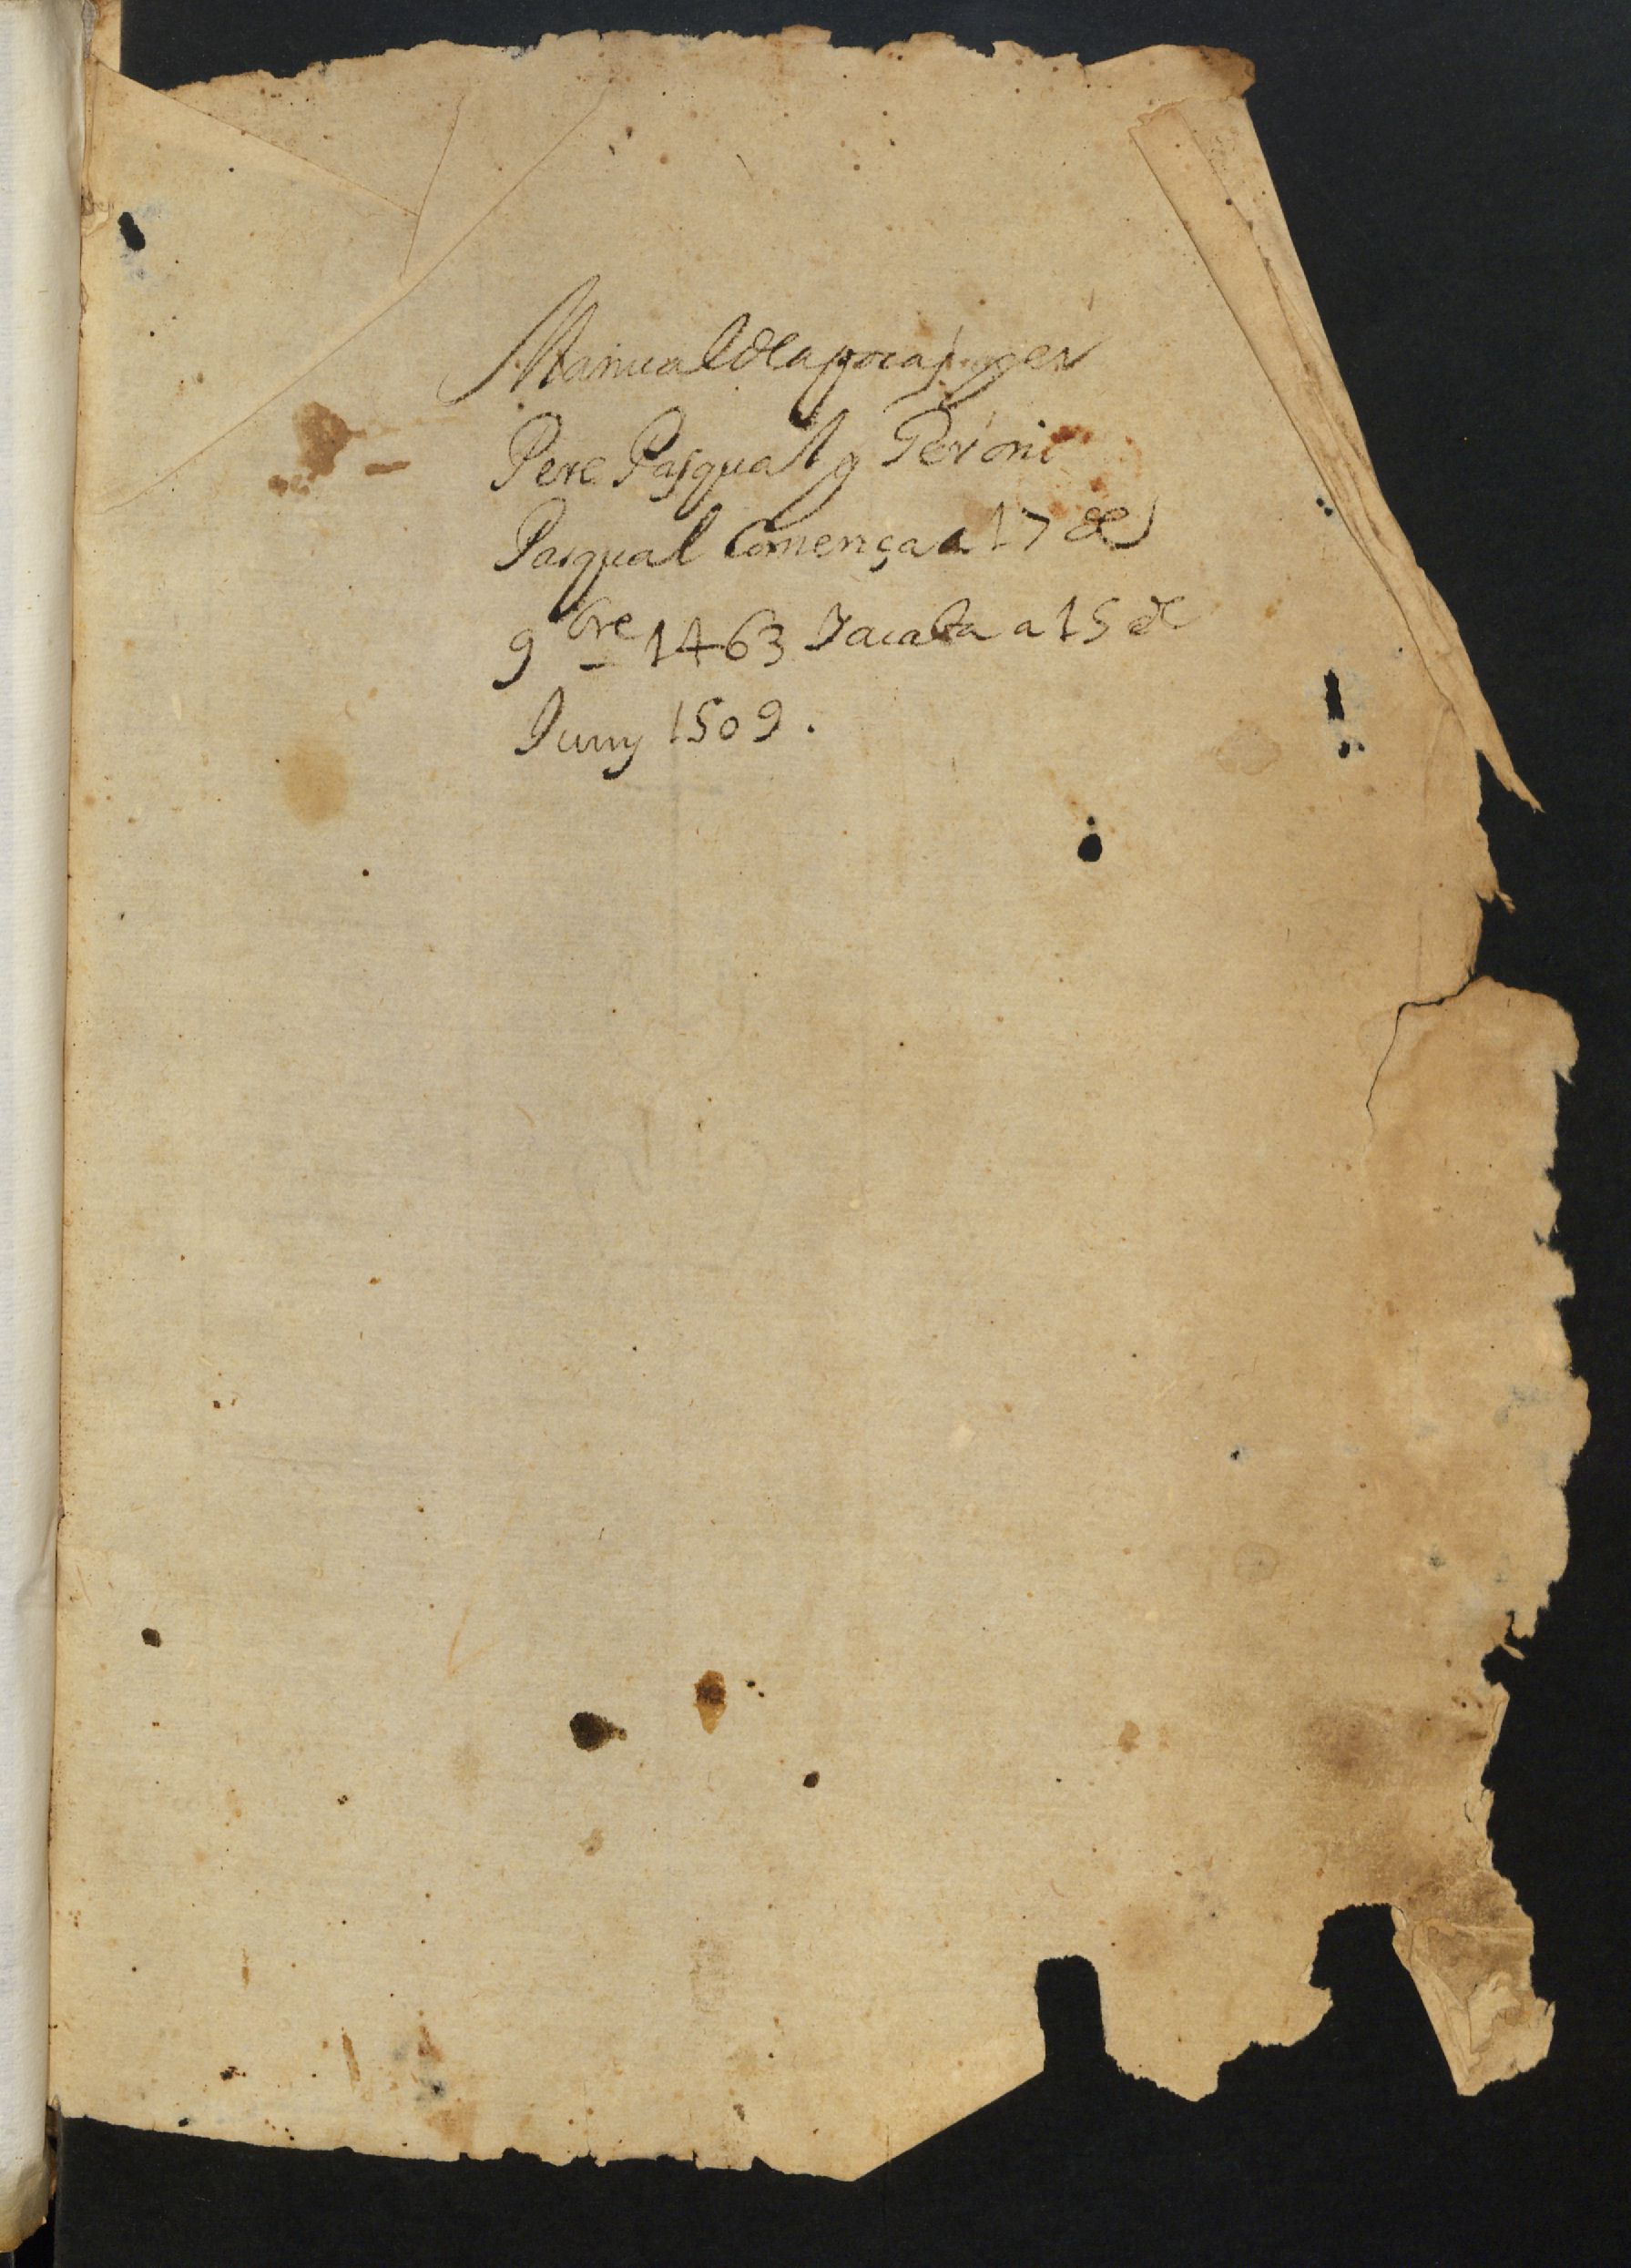 Manual de apocas per
Pere Pasqual y Peroni
Pasqual Comença a 17 de
9bre 1463 Y acaba a 15 de
Juny 1509.